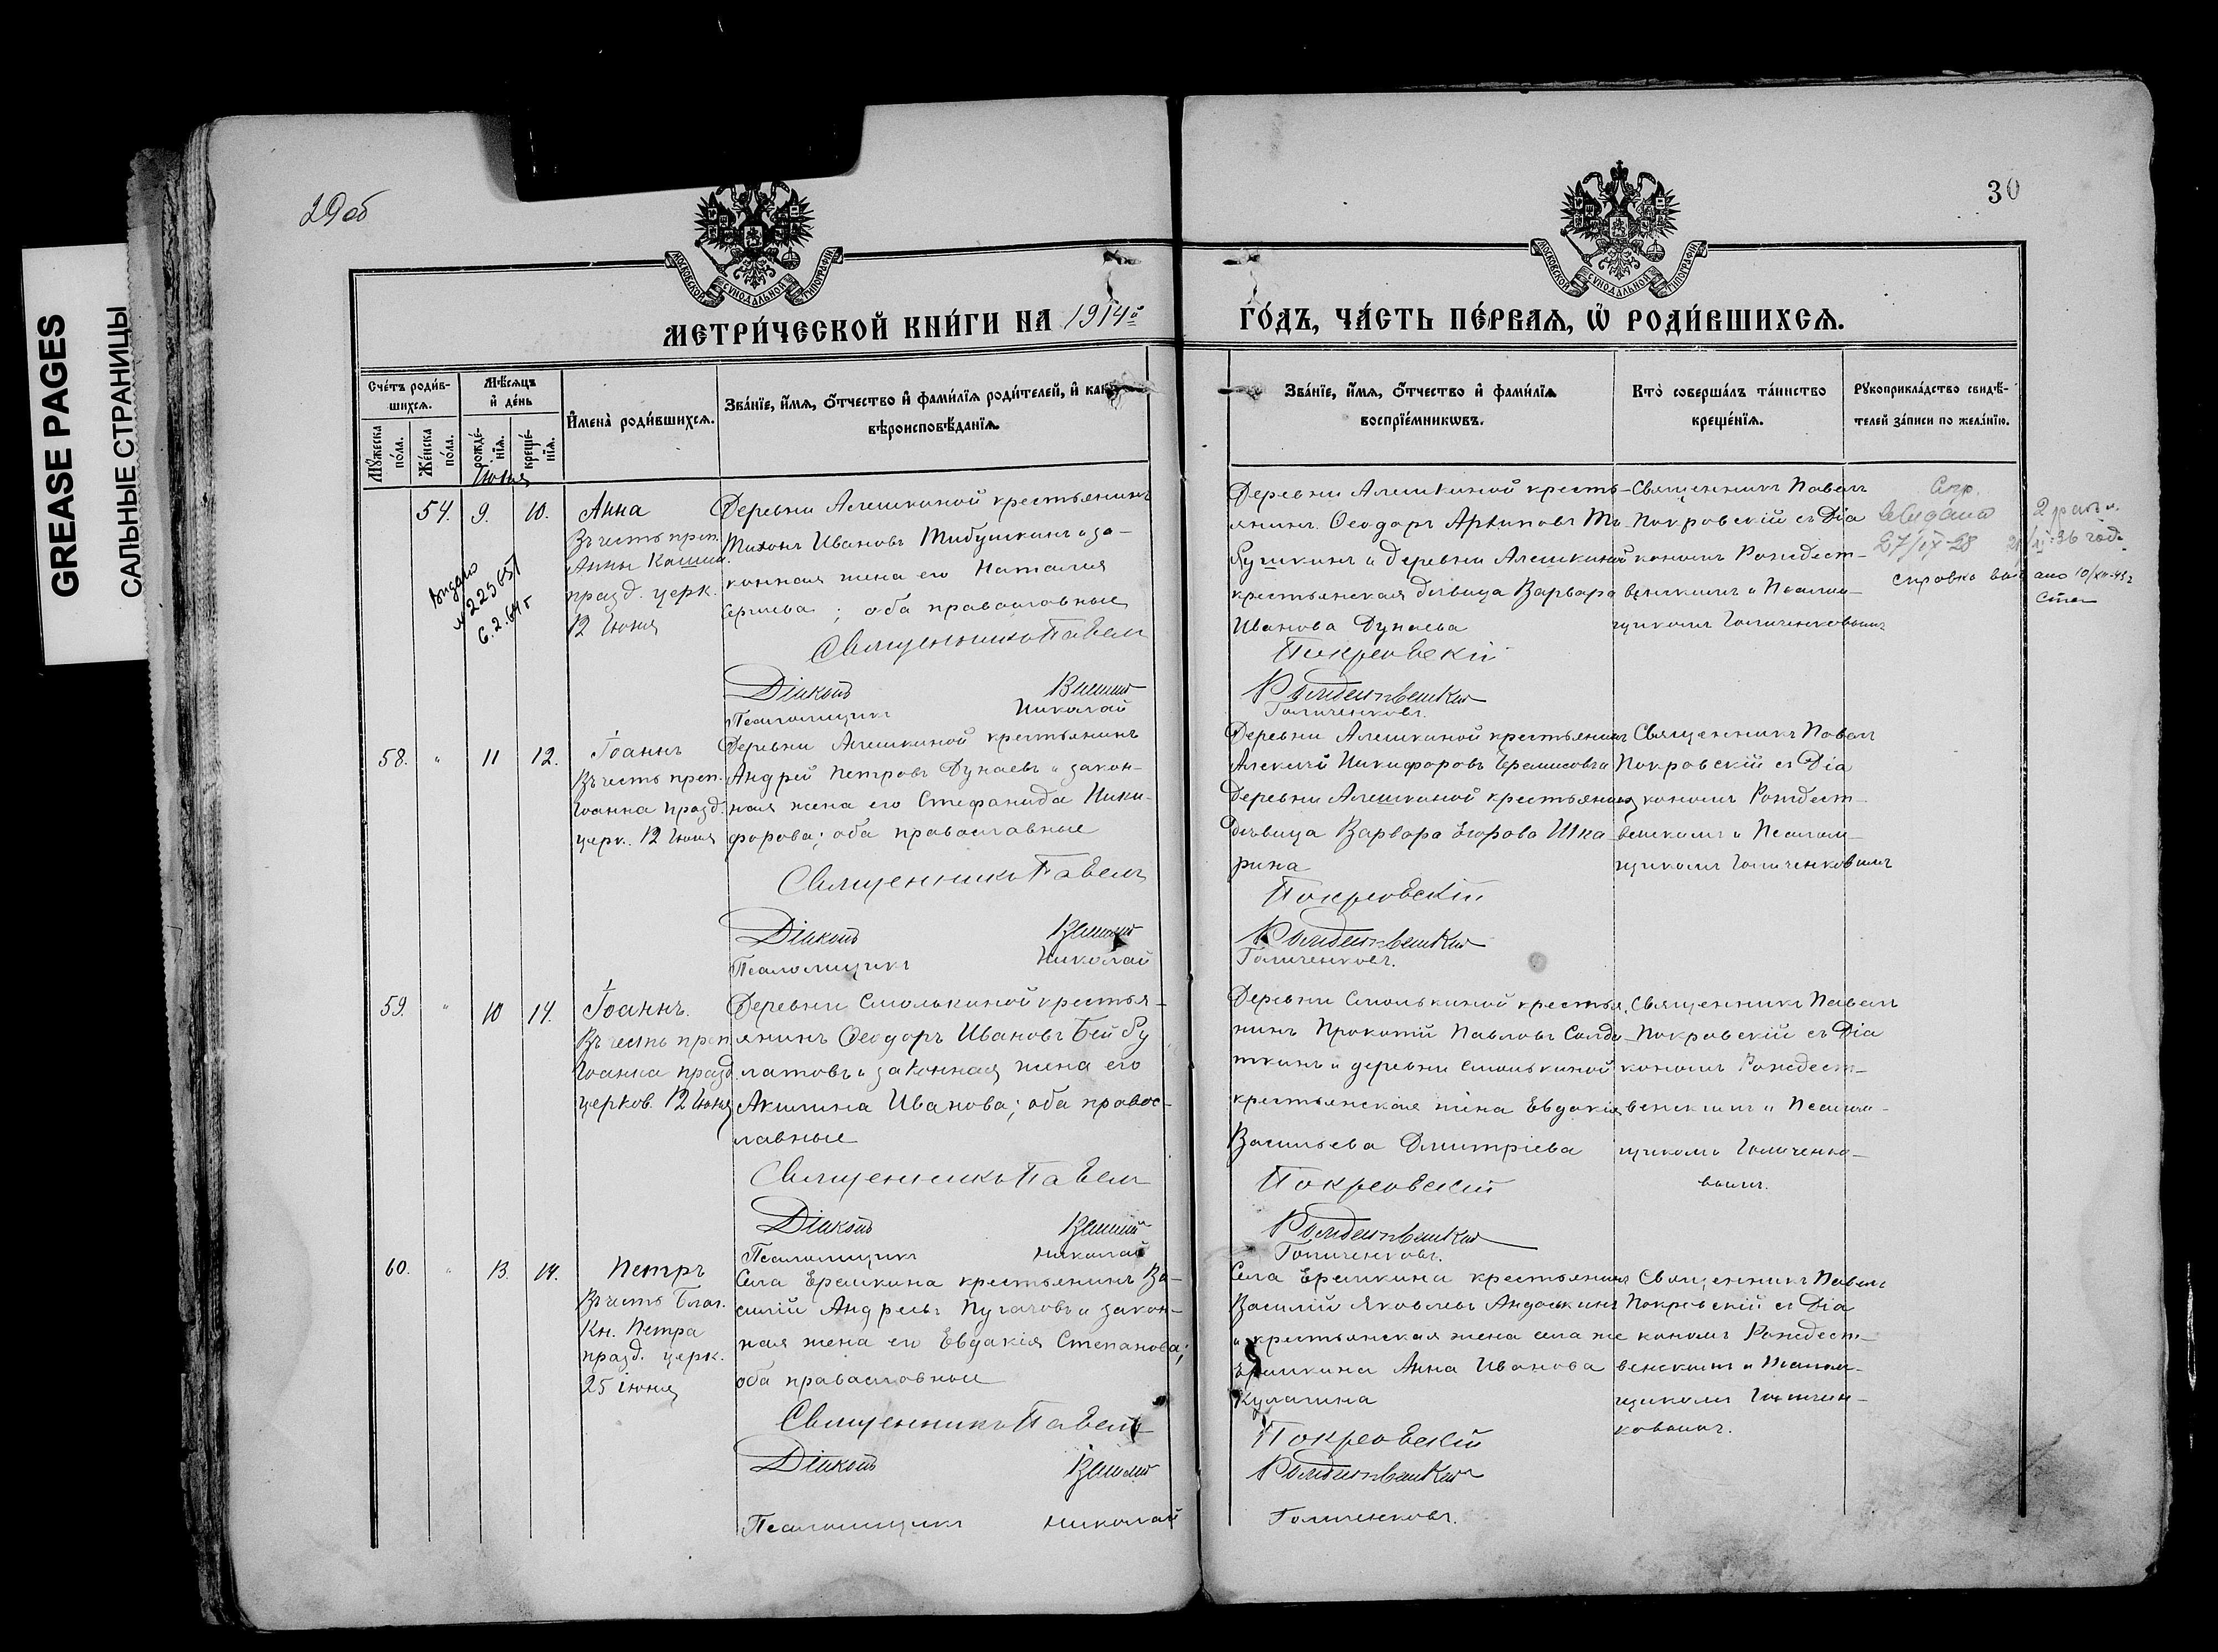 GREASE PAGES
САЛЬНЫЕ СТРАНИЦЫ
29об
30
МОСКОВСКОЙ СУНОДАЛЬНОЙ ТИПОГРАФІИ
МОСКОВСКОЙ СУНОДАЛЬНОЙ ТИПОГРАФІИ
МЕТРИ́ЧЕСКОЙ КНИ́ГИ НА 1914й
ГО́ДЪ, ЧА́СТЬ ПЕ́РВАѦ, Ѿ РОДИ́ВШИХСѦ.
Сче́тъ роди́в-
шихсѧ.
Мѣ́сѧцъ
и҆ де́нь
Мꙋ́жеска
по́ла.
Же́нска
по́ла.
рожде́-
нїѧ.
креще́-
нїѧ.
И҆мена̀ роди́вшихсѧ.
Зва́нїе, и҆́мѧ, ѻ҆́тчество и҆ фами́лїѧ роди́телей, и҆ како́гѡ
вѣроисповѣ́данїѧ.
Зва́нїе, и҆́мѧ, ѻ҆́тчество и҆ фами́лїѧ
воспрїе́мникѡвъ.
Кто̀ соверша́лъ та́инство
креще́нїѧ.
Рꙋкоприкла́дство свидѣ́-
телей за́писи по жела́нїю.
Іюня
54. 9. 10. Анна
Въ честь преп.
Анны Кашин.
празд. церк.
12 Іюня
Выдано
№ 229651
6.2.64г
Деревни Алешкиной крестьянинъ
Тихонъ Ивановъ Тибушкинъ и за-
конная жена его Наталия
Сергиева; оба православные
Священникъ Павелъ
Діаконъ
Псаломщикъ Николай
Деревни Алешкиной кресть-
янинъ Ѳеодоръ Архиповъ
и деревни Алешкиной
крестьянская дѣвица Варвара
Иванова Дунаева
Покровскій
Рождественскій
Голиченковъ.
Священникъ Павелъ
Покровскій съ Діа
кономъ Рождест-
венскимъ и Псалом-
щикомъ Голиченковымъ
Спр.
выдана
27/IX-28
2 раз
36 год.
справка выд ано 10/XII-43г
58. " 11 12. Іоаннъ
Въ честь преп.
Іоанна празд.
церк. 12 Іюня
Деревни Алешкиной крестьянинъ
Андрей Петровъ Дунаевъ и закон-
ная жена его Стефанида Ники-
форова; оба православные
Священникъ Павелъ
Діаконъ
Псаломщикъ Николай
Деревни Алешкиной крестьянинъ
Алексѣй Никифоровъ
Деревни Алешкиной крестьянская
Дѣвица Варвара Егорова Шка
рина
Покровскій
Рождественскій
Голиченковъ.
Священникъ Павелъ
Покровскій съ Діа
кономъ Рождест-
венскимъ и Псалом-
щикомъ Голиченковымъ
59. " 10 14. Іоаннъ.
Въ честь преп.
Іоанна празд.
церков. 12 Іюня
Деревни Смолькиной крестья-
янинъ Ѳеодоръ Ивановъ Бейбу
латовъ и законная жена его
Акилина Иванова; оба правос-
лавные
Священникъ Павелъ
Діаконъ
Псаломщикъ Николай
Деревни Смолькиной крестья-
нинъ Прокопій Павловъ Солда-
ткинъ и деревни Смолькиной
крестьянская жена Евдокія
Васильева Дмитріева
Покровскій
Рождественскій
Голиченковъ.
Священникъ Павелъ
Покровскій съ Діа
кономъ Рождест-
венскимъ и Псалом-
щикомъ Голиченко-
вымъ.
60. " 13. 14. Петръ
Въ честь Благ.
Кн. Петра
празд. церк.
25 іюня
Села Еремкина крестьянинъ Ва-
силій Андреевъ Пугачовъ и закон-
ная жена его Евдокія Степанова;
оба православные
Священникъ Павелъ
Діаконъ
Псаломщикъ Николай
Села Еремкина крестьянинъ
Василій Яковлевъ Андоськинъ
и крестьянская жена села же
Еремкина Анна Иванова
Кулагина
Покровскій
Рождественскій
Голиченковъ.
Священникъ Павелъ
Покровскій съ Діа
кономъ Рождест-
венскимъ и Псалом-
щикомъ Голичен-
ковымъ.